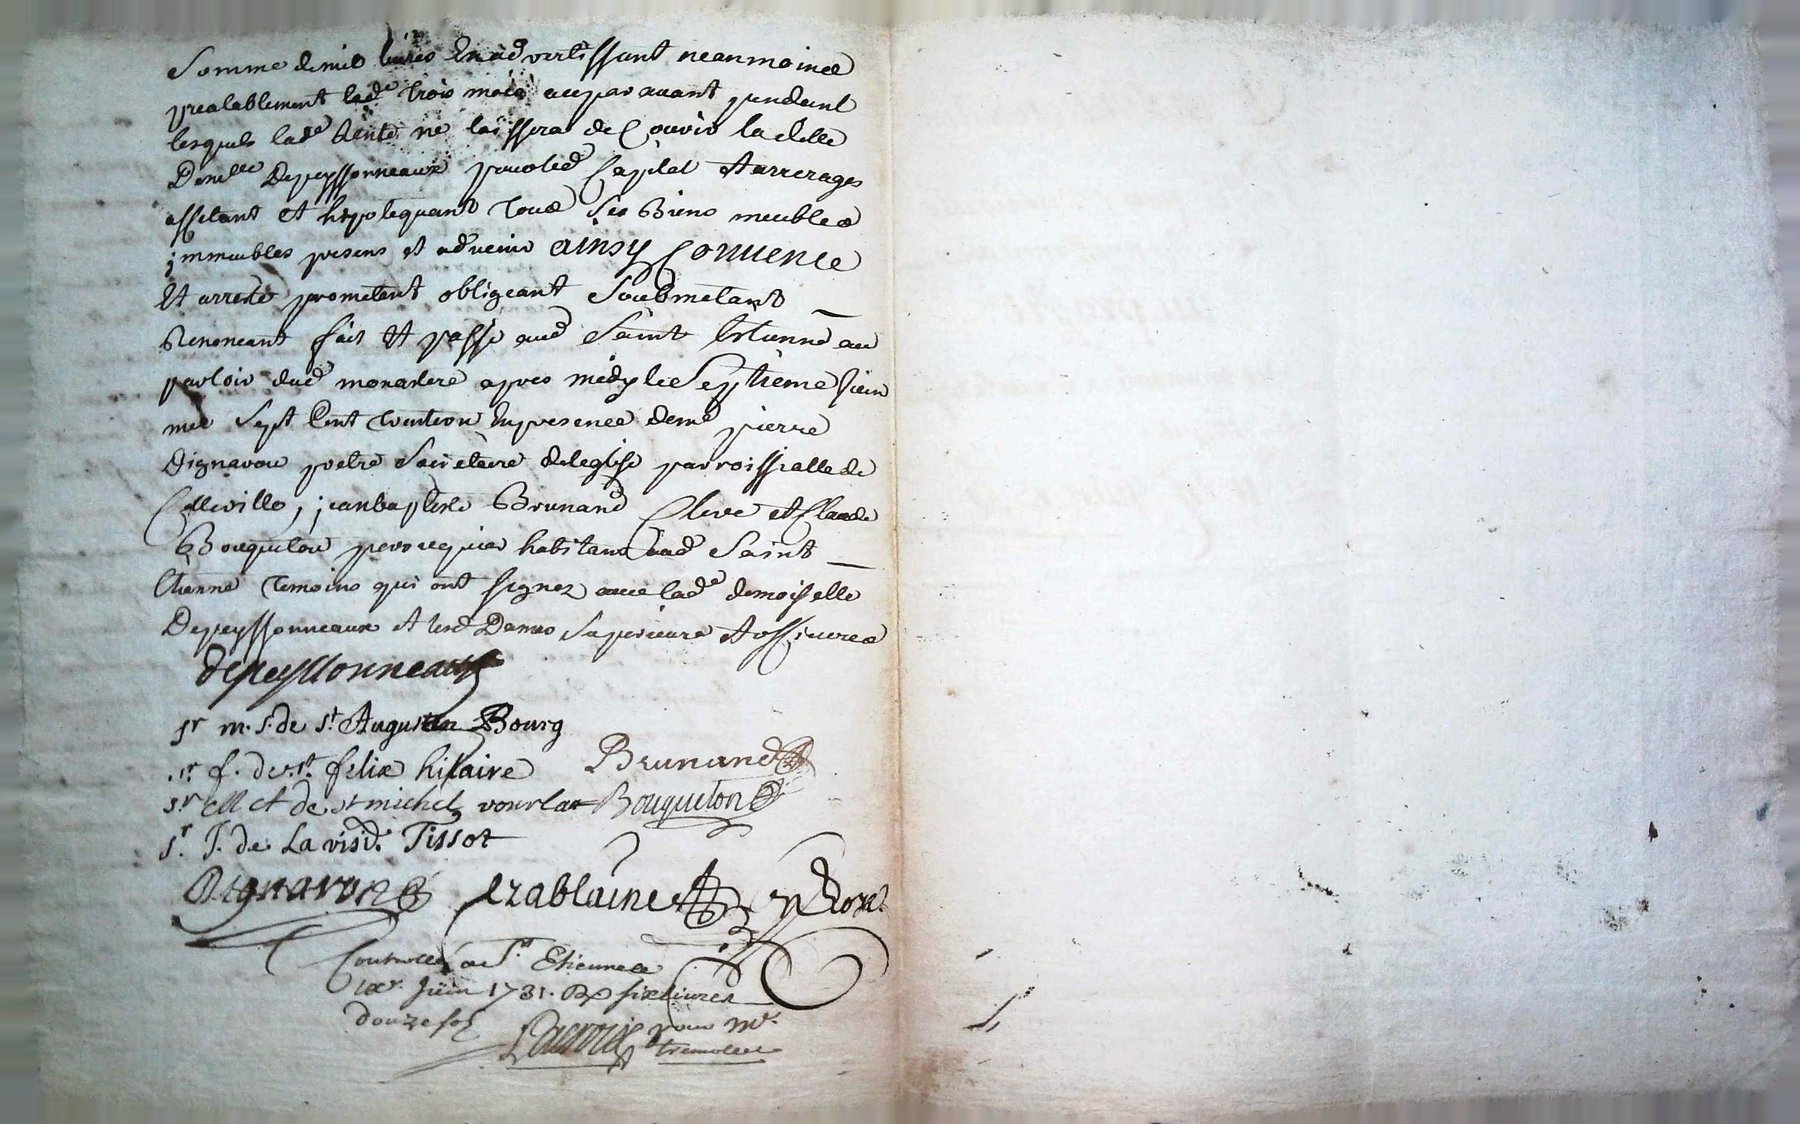 Somme de mil livres En advertissant neanmoines
prealablement lade trois mois auparavant pendant
lesquels lade Rente ne laissera de Couvir ladette
Demlle Depeyssonneaux pour led Capital Et arrerages
affectant et hypotequant tous ses Biens meubles
immeubles presens et advenir ainsy Convenee
Et arresté prometant obligeant Soubmetant
Renoncant fait Et passé aud Saint Estienne au
parloir dud monastere apres midy le Septieme Juin
mil Sept Cent trente un En presence de me pierre
Dignavon pretre Societaire de leglise parroissialle de
Cette ville, jean baptiste Brunand Clerc et Claude
Bouqueton perruquier habitans aud Saint
Etienne temoins qui ont signez avec lade demoiselle
Depeyssonneaux et lesd Dames Superieure et officieres
depeyssonneaux
sr m. s. de st Augustin Bourg
sr f. de st felix hilaire Brunand
sr M A de st michel Bouqueton
sr J. de La visid. Tissot
Dignavon Ezablaine
Controllé a St Etienne le
Juin 1731. R six livres
douze sols
Lacroix pour mr.
tremolet